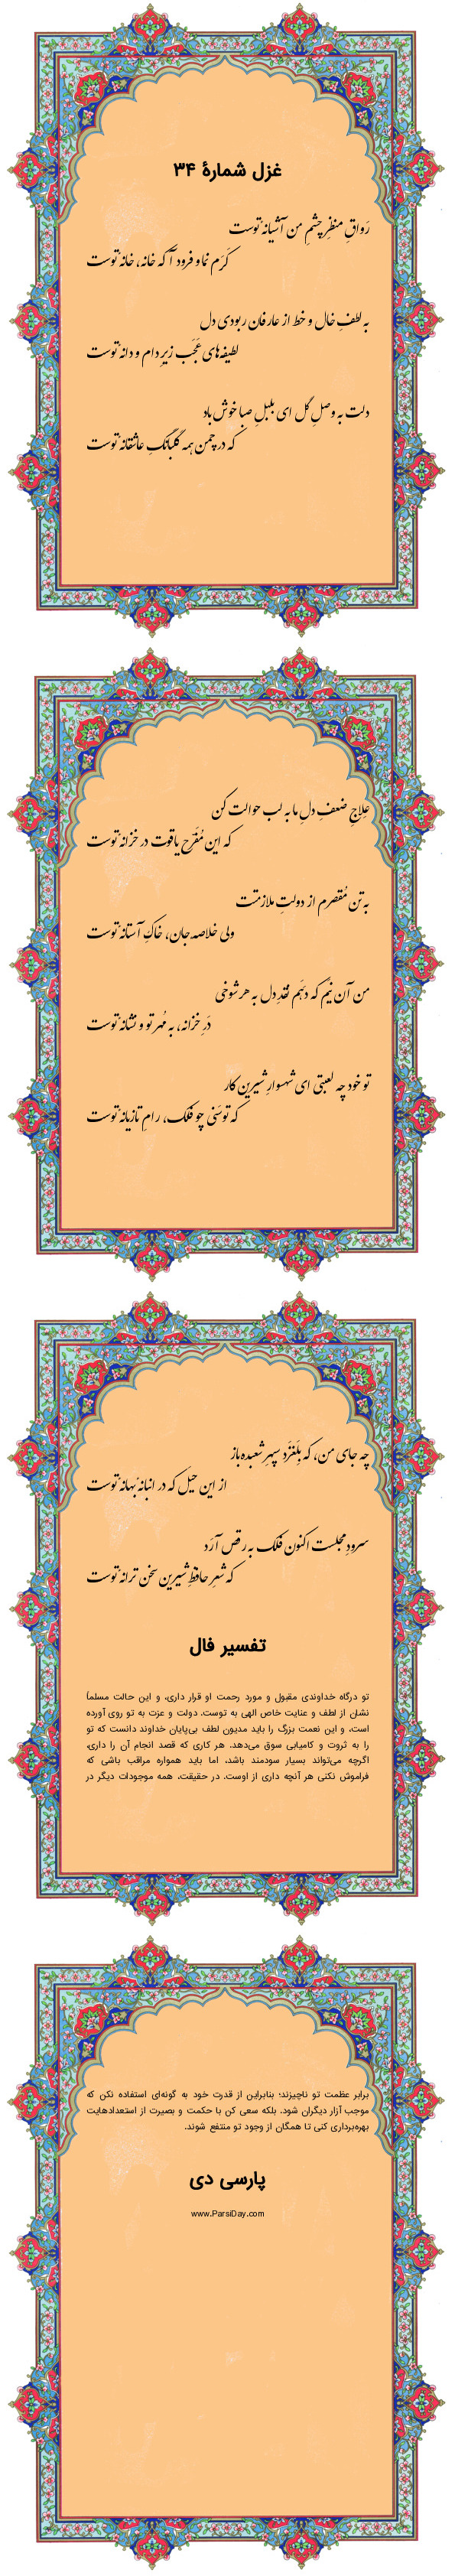 غزل شمارهٔ ۳۴
رَواقِ منظرِ چشمِ من آشیانه توست
کَرَم نما و فرود آ که خانه، خانه توست
به لطفِ خال و خط از عارفان ربودی دل
لطیفه‌های عَجَب زیرِ دام و دانه توست
دلت به وصلِ گل ای بلبلِ صبا خوش باد
که در چمن همه گلبانگِ عاشقانه توست
عِلاجِ ضعفِ دلِ ما به لب حوالت کن
که این مُفَرِّحِ یاقوت در خزانه توست
به تن مُقصرم از دولتِ ملازمتت
ولی خلاصه جان، خاکِ آستانه توست
من آن نیَم که دهَم نقدِ دل به هر شوخی
دَرِ خزانه، به مُهر تو و نشانه توست
تو خود چه لعبتی ای شهسوارِ شیرین کار
که توسَنی چو فلک، رامِ تازیانه توست
چه جای من، که بِلَغزَد سپهرِ شعبده‌باز
از این حیَل که در انبانهٔ بهانه توست
سرودِ مجلست اکنون فلک به رقص آرَد
که شعرِ حافظِ شیرین سخن ترانه توست
تفسیر فال
تو درگاه خداوندی مقبول و مورد رحمت او قرار داری، و این حالت مسلماً
نشان از لطف و عنایت خاص الهی به توست. دولت و عزت به تو روی آورده
است، و این نعمت بزرگ را باید مدیون لطف بی‌پایان خداوند دانست که تو
را به ثروت و کامیابی سوق می‌دهد. هر کاری که قصد انجام آن را داری،
اگرچه می‌تواند بسیار سودمند باشد، اما باید همواره مراقب باشی که
فراموش نکنی هر آنچه داری از اوست. در حقیقت، همه موجودات دیگر در
برابر عظمت تو ناچیزند؛ بنابراین از قدرت خود به گونه‌ای استفاده نکن که
موجب آزار دیگران شود. بلکه سعی کن با حکمت و بصیرت از استعدادهایت
بهره‌برداری کنی تا همگان از وجود تو منتفع شوند.
پارسی دی
www.ParsiDay.com